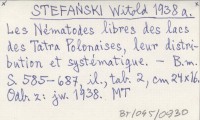 STEFAŃSKI Witold 1938 a.
Les Nématodes libres des lacs
des Tatra Polonaises, leur distri-
bution et systématique. – B.m.
S. 585–687, il., tab. 2, cm 24x16.
Odb. z: jw. 1938. MT
Br/045/0930